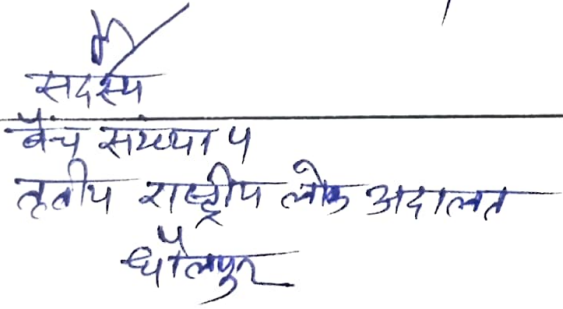 सदस्य
बैंच संख्या ५
तृतीय राष्ट्रीय लोक अदालत
धौलपुर